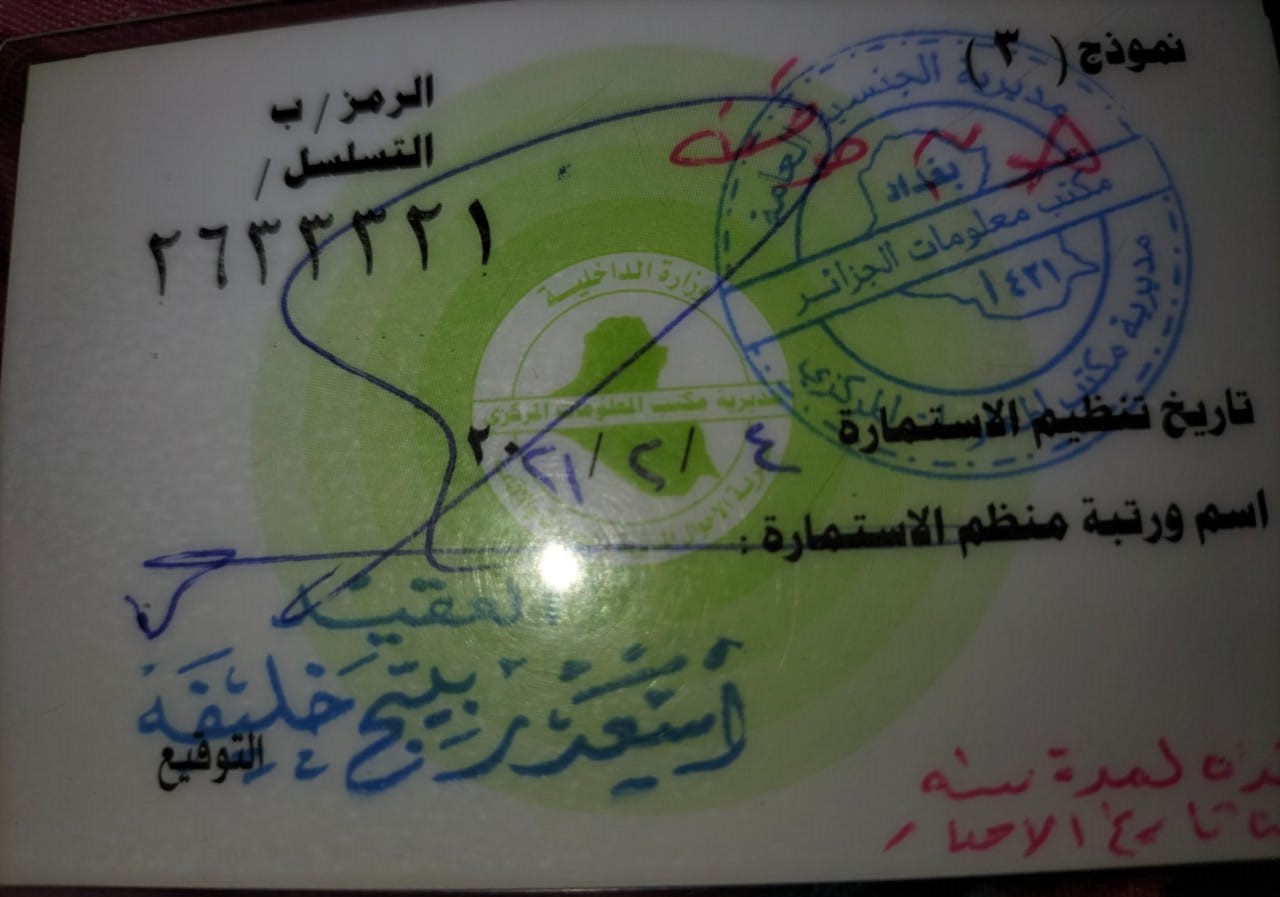 نموذج ( ٣ )
الرمز / ب
التسلسل /
٢٦٣٣٣٢١
مديرية الجنسية العامة
بغداد
مكتب معلومات الجزائر
٤٢١ أ
مديرية مكتب المعلومات المركزي
وزارة الداخلية
مديرية مكتب المعلومات المركزي
تاريخ تنظيم الاستمارة ٤ / ٢ / ٢٠٢١
اسم ورتبة منظم الاستمارة :
العقيد
خليفة
التوقيع
لمدة سنة
تاريخ الاصدار